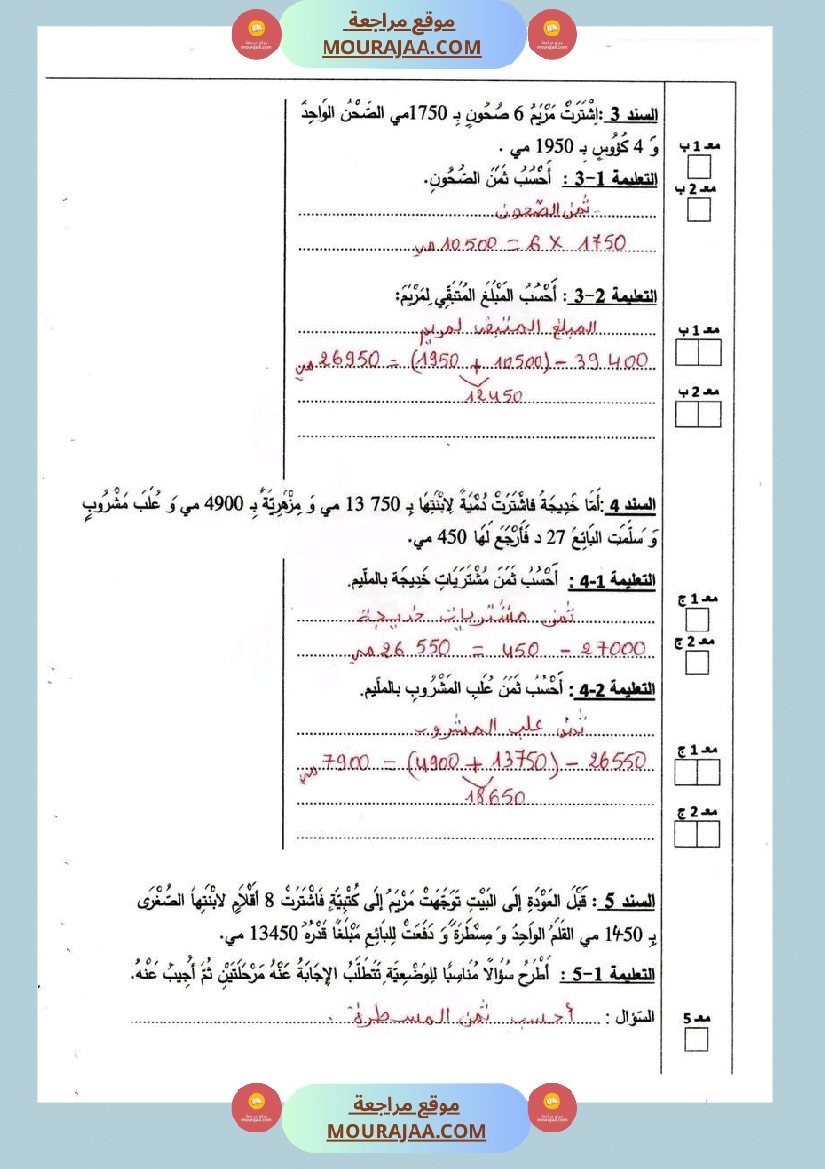 موقع مراجعة
MOURAJAA.COM
السند 3 :اِشْتَرَتْ مَرْيَمُ 6 صُحُونٍ بِـ 1750مي الصَّحْنُ الوَاحِدُ
وَ 4 كُؤُوسٍ بـ 1950 مي .
معـ 1 ب
معـ 2 ب
التعليمة 1-3 : أَحْسُبُ ثَمَنَ الصُّحُونِ.
ثمن الصّحون
1750 × 6 = 10500 مي
التعليمة 2-3 : أَحْسُبُ المَبْلَغَ المُتَبَقِّي لِمَرْيَمَ:
معـ 1 ب
المبلغ المتبقي لمريم
39 400 - (10500 + 1950) = 26950 مي
12450
معـ 2 ب
السند 4 :أَمَّا خَدِيجَةُ فاشْتَرَتْ دُمْيَةً لِابْنَتِهَا بِـ 750 13 مي وَ مِزْهَرِيَّةً بِـ 4900 مي وَ عُلَبَ مَشْرُوبٍ
وَ سَلَّمَتِ البَائِعُ 27 د فَأَرْجَعَ لَهَا 450 مي.
التعليمة 1-4 : أَحْسُبُ ثَمَنَ مُشْتَرَيَاتِ خَدِيجَة بالملّيم.
معـ 1 ج
ثمن مشتريات خديجة
معـ 2 ج
27000 - 450 = 26 550 مي
التعليمة 2-4 : أَحْسُبُ ثَمَنَ عُلَبِ المَشْرُوبِ بالملّيم.
ثمن علب المشروب
معـ 1 ج
26550 - (13750 + 4900) = 7900 مي
18650
معـ 2 ج
السند 5 : قَبْلَ العَوْدَةِ إلَى البَيْتِ تَوَجَّهَتْ مَرْيَمُ إلَى كُتْبِيَّةٍ فَاشْتَرَتْ 8 أَقْلَامٍ لابْنَتِهَا الصُّغْرَى
بِـ 1450 مي القَلَمُ الوَاحِدُ وَ مِسْطَرَةً وَ دَفَعَتْ لِلبَائِعِ مَبْلَغًا قَدْرُهُ 13450 مي.
التعليمة 1-5 : أَطْرَحُ سُؤَالًا مُنَاسِبًا لِلوَضْعِيَّة تَتَطَلَّبُ الإجَابَةُ عَنْهُ مَرْحَلَتَيْنِ ثُمَّ أُجِيبُ عَنْهُ.
معـ 5
السّؤال : أحسب ثمن المسطرة .
موقع مراجعة
MOURAJAA.COM